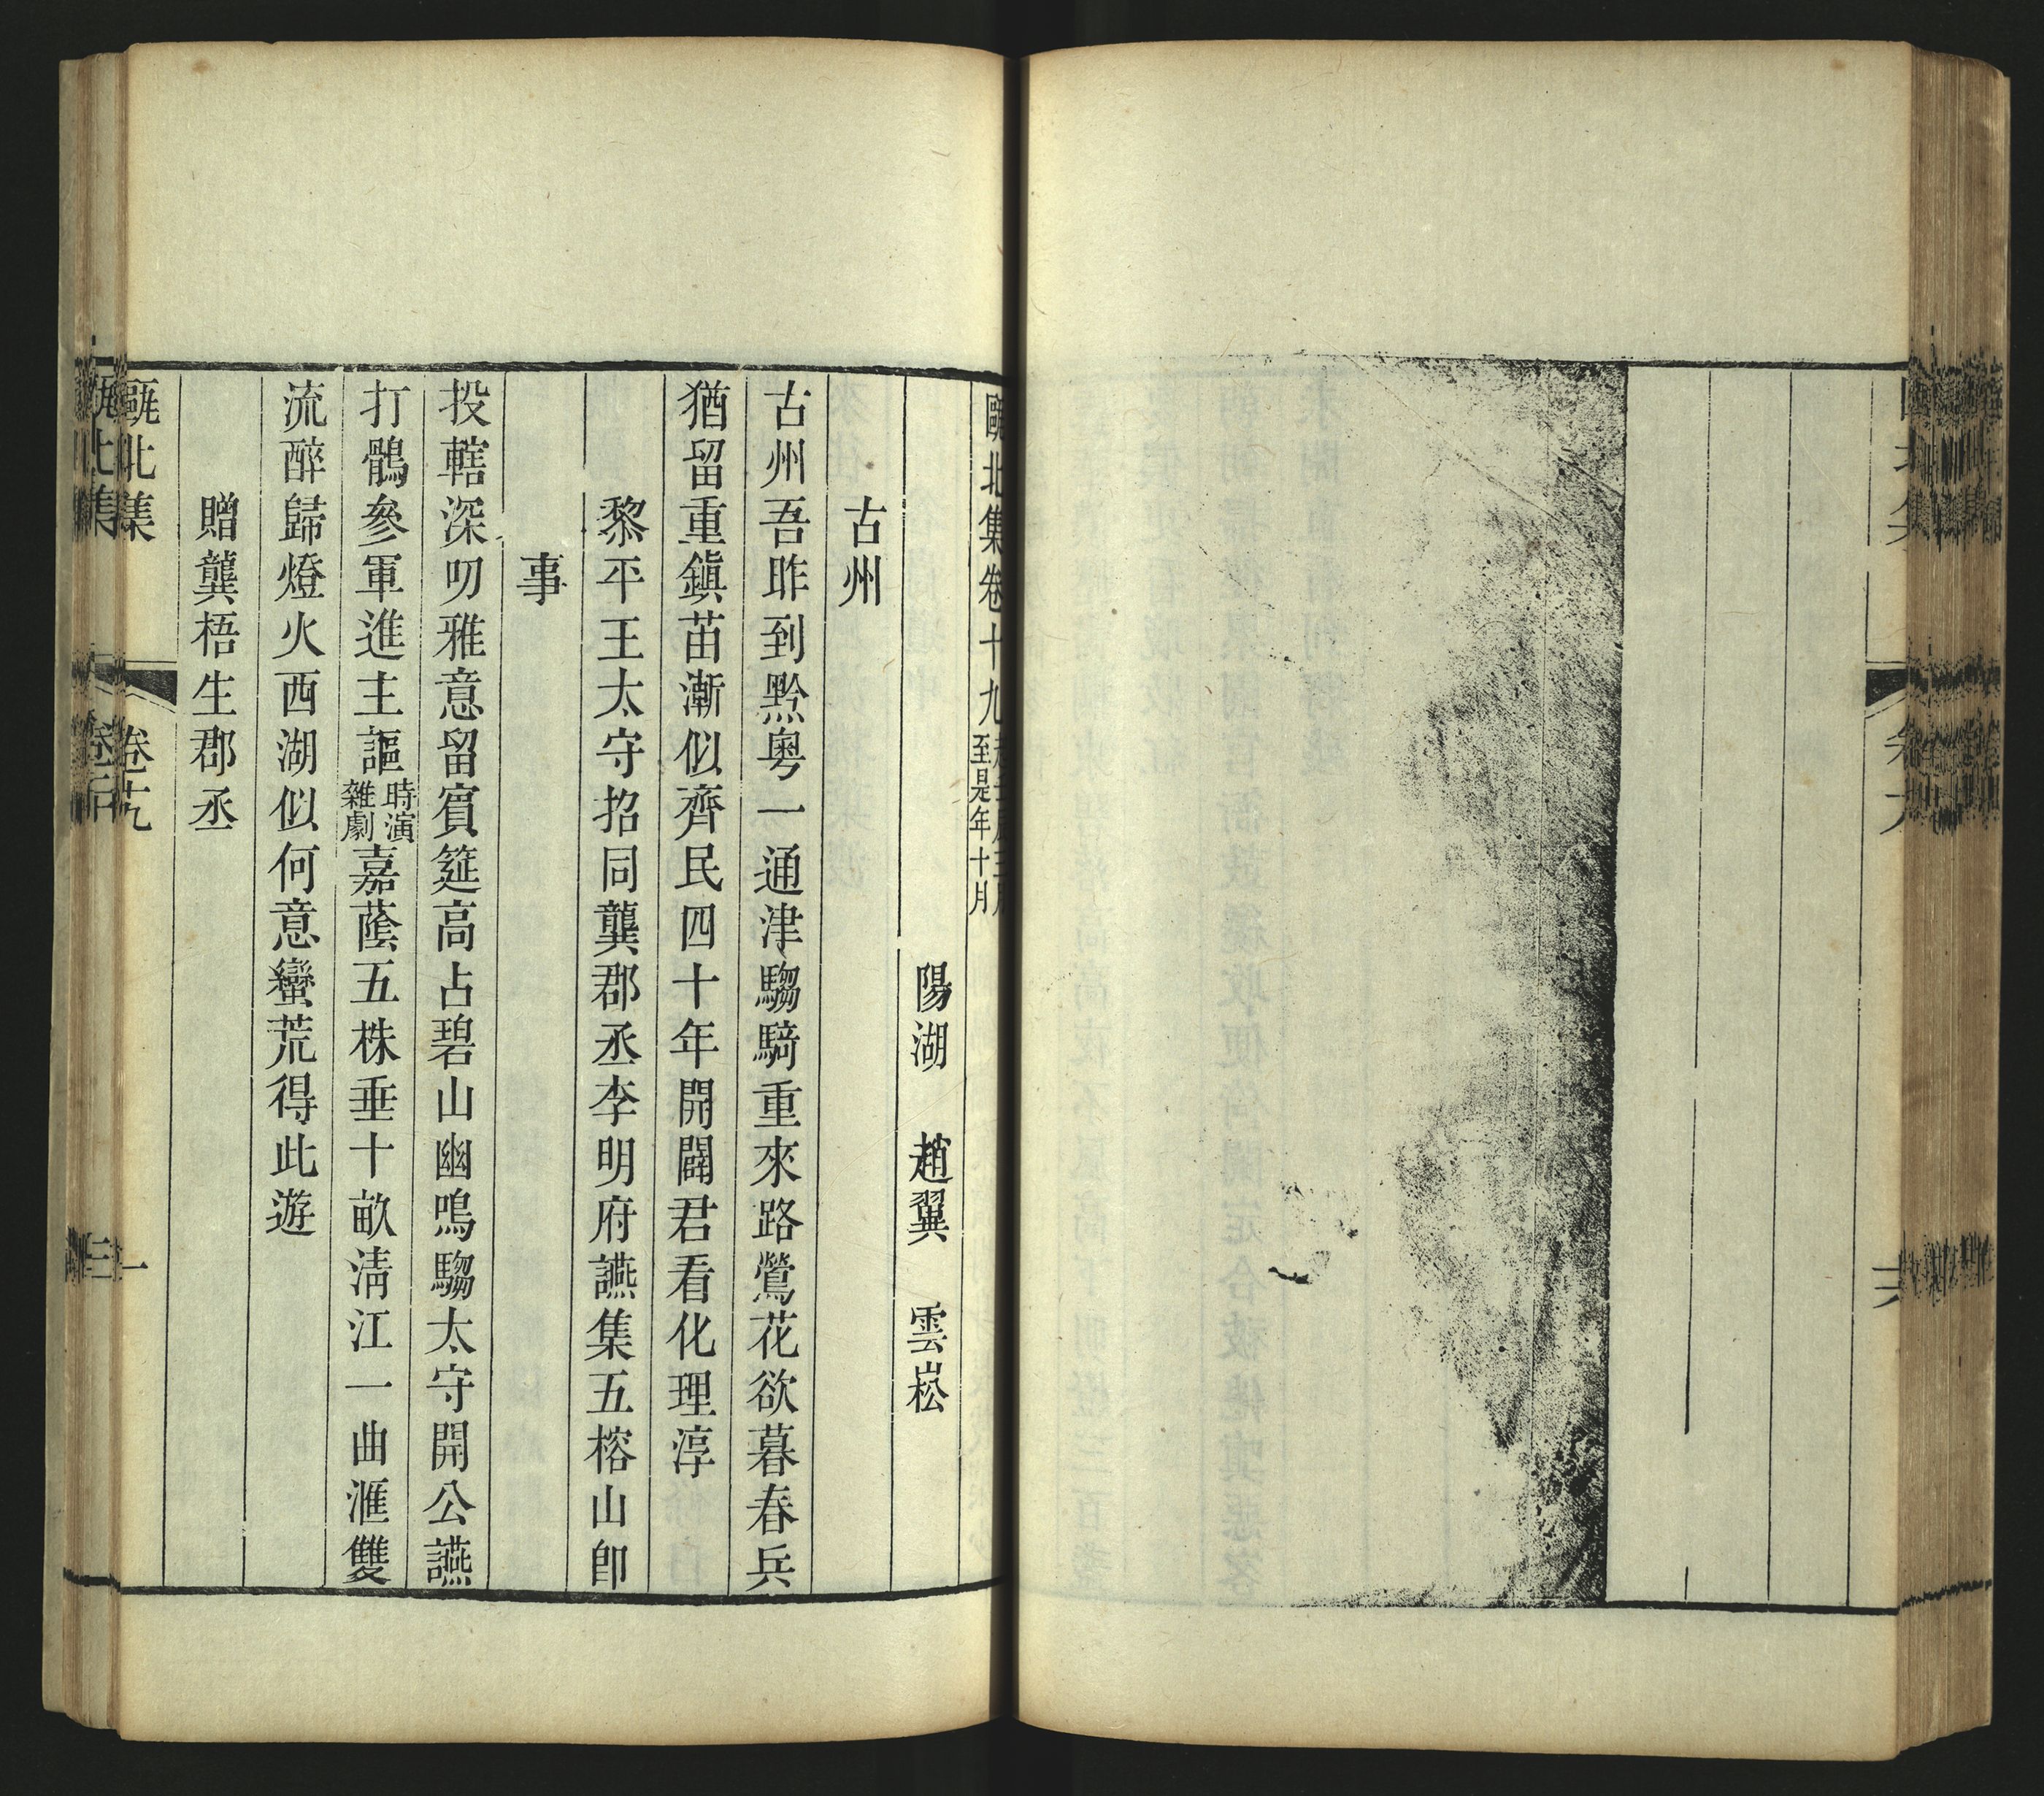 甌北集卷十九
至是年十月
陽湖　趙翼　雲崧
古州
古州吾昨到黔粤一通津騶騎重來路鶯花欲暮春兵
猶留重鎭苗漸似齊民四十年開闢君看化理淳
黎平王太守招同龔郡丞李明府讌集五榕山卽
事
投轄深叨雅意留賓筵高占碧山幽鳴騶太守開公讌
打鶻參軍進主謳時演雜劇嘉蔭五株垂十畝淸江一曲滙雙
流醉歸燈火西湖似何意蠻荒得此遊
贈龔梧生郡丞
甌北集
卷十九
一